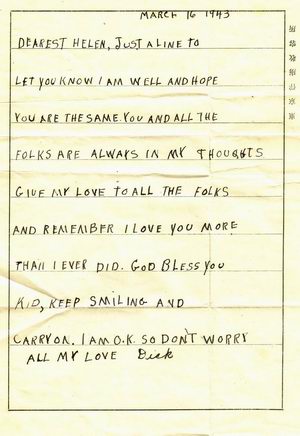 MARCH 16 1943
DEAREST HELEN, JUST A LINE TO
LET YOU KNOW I AM WELL AND HOPE
YOU ARE THE SAME. YOU AND ALL THE
FOLKS ARE ALWAYS IN MY THOUGHTS
GIVE MY LOVE TO ALL THE FOLKS
AND REMEMBER I LOVE YOU MORE
THAN I EVER DID. GOD BLESS YOU
KID, KEEP SMILING AND
CARRY ON. I AM O.K. SO DON'T WORRY
ALL MY LOVE Dick